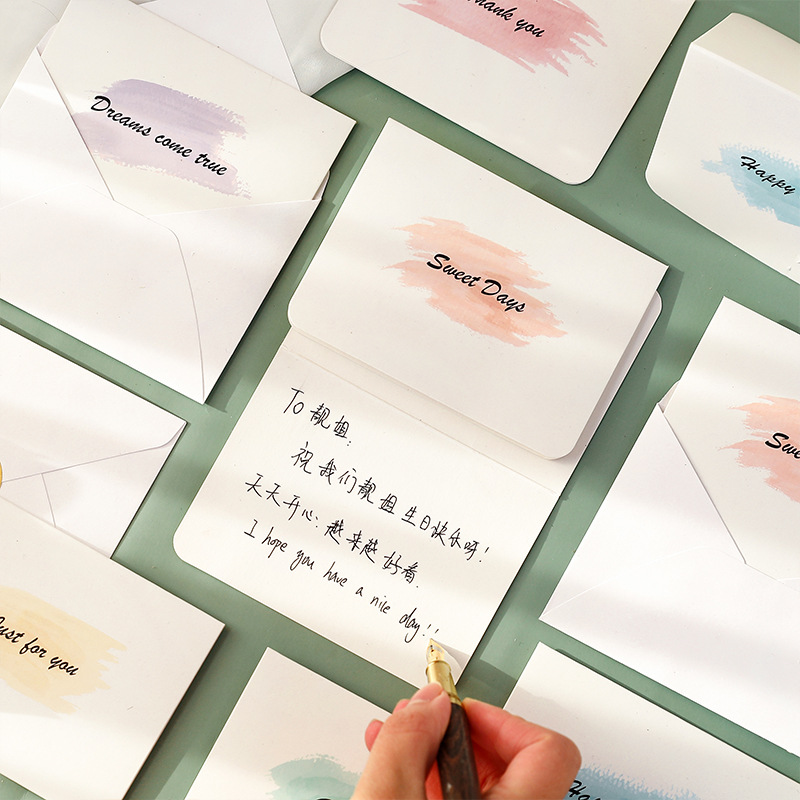 Thank you
Dreams come true
Happy
Sweet Days
To 靓姐:
祝我们靓姐生日快乐呀!
天天开心:越来越好看.
I hope you have a nice day!!
Just for you